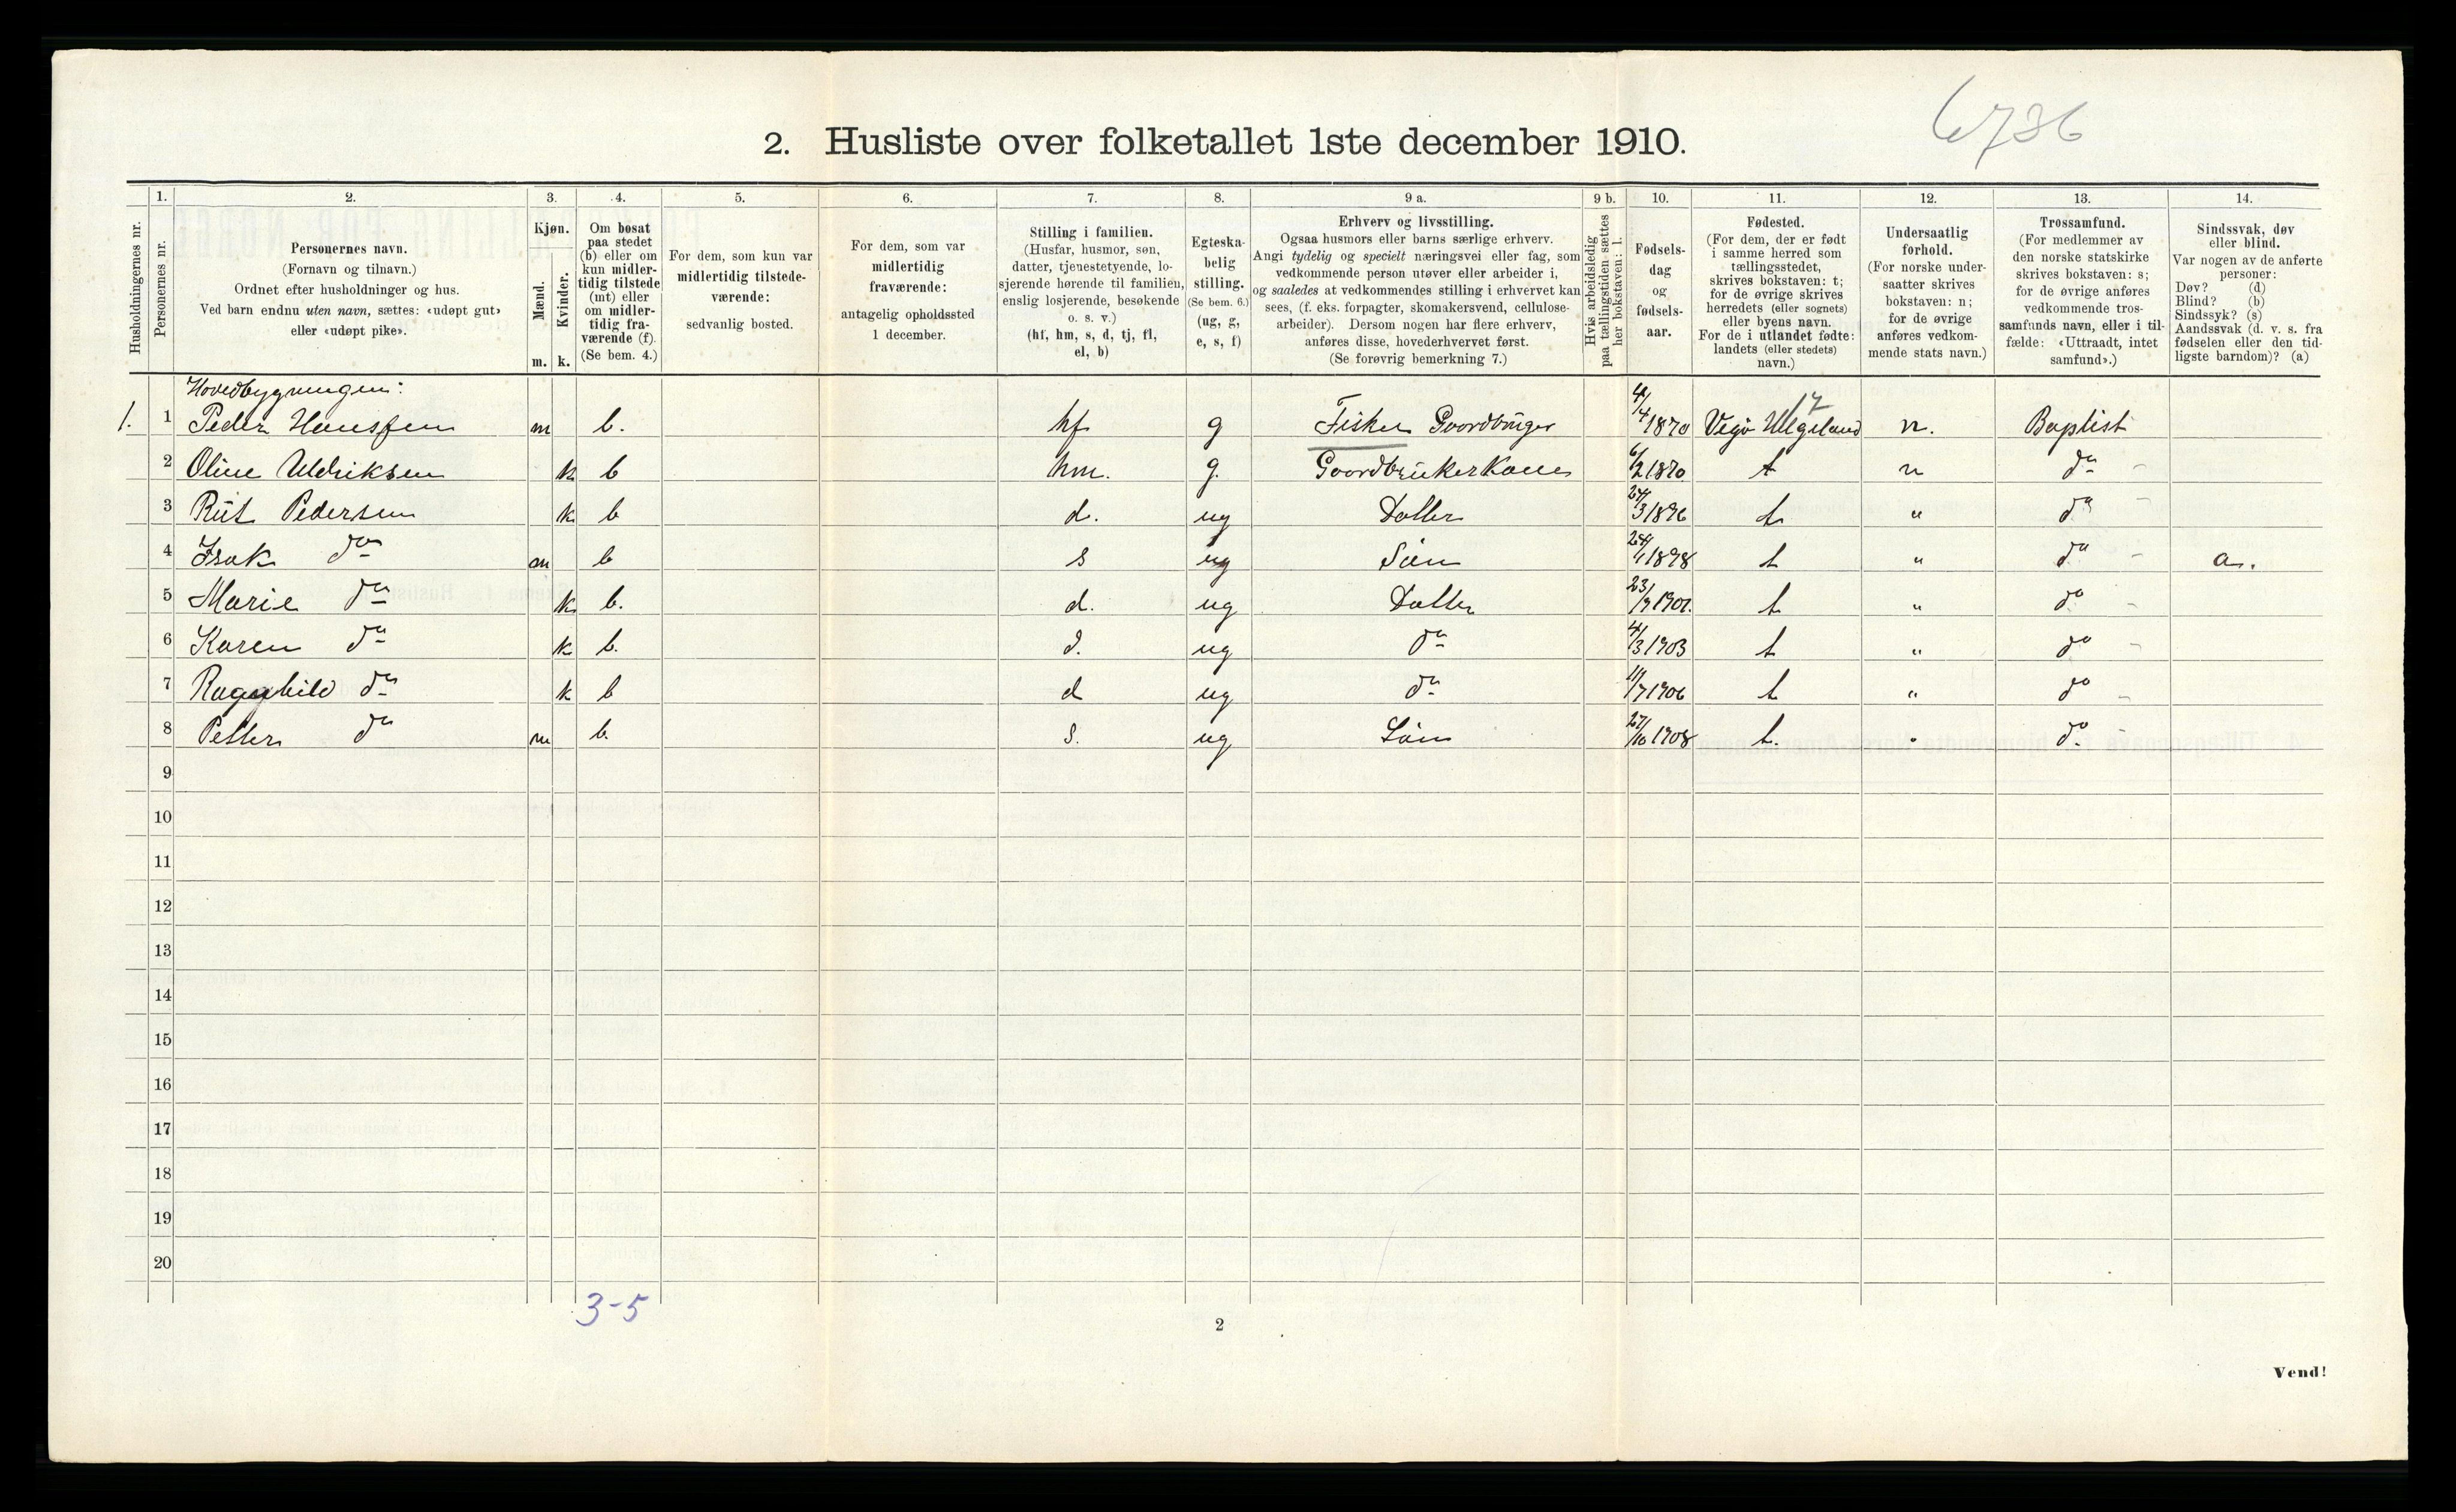 6736
2. Husliste over folketallet 1ste december 1910.
Husholdningernes nr.
1.
Personernes nr.
2.
Personernes navn.
(Fornavn og tilnavn.)
Ordnet efter husholdninger og hus.
Ved barn endnu uten navn, sættes: «udøpt gut»
eller «udøpt pike».
3.
Kjøn.
Mænd.
Kvinder.
m. k.
4.
Om bosat
paa stedet
(b) eller om
kun midler-
tidig tilstede
(mt) eller
om midler-
tidig fra-
værende (f).
(Se bem. 4.)
5.
For dem, som kun var
midlertidig tilstede-
værende:
sedvanlig bosted.
6.
For dem, som var
midlertidig
fraværende:
antagelig opholdssted
1 december.
7.
Stilling i familien.
(Husfar, husmor, søn,
datter, tjenestetyende, lo-
sjerende hørende til familien,
enslig losjerende, besøkende
o. s. v.)
(hf, hm, s, d, tj, fl,
el, b)
8.
Egteska-
belig
stilling.
(Se bem. 6.)
(ug, g,
e, s, f)
9 a.
Erhverv og livsstilling.
Ogsaa husmors eller barns særlige erhverv.
Angi tydelig og specielt næringsvei eller fag, som
vedkommende person utøver eller arbeider i,
og saaledes at vedkommendes stilling i erhvervet kan
sees, (f. eks. forpagter, skomakersvend, cellulose-
arbeider). Dersom nogen har flere erhverv,
anføres disse, hovederhvervet først.
(Se forøvrig bemerkning 7.)
9 b.
Hvis arbeidsledig
paa tællingstiden sættes
her bokstaven: l.
10.
Fødsels-
dag
og
fødsels-
aar.
11.
Fødested.
(For dem, der er født
i samme herred som
tællingsstedet,
skrives bokstaven: t;
for de øvrige skrives
herredets (eller sognets)
eller byens navn.
For de i utlandet fødte:
landets (eller stedets)
navn.)
12.
Undersaatlig
forhold.
(For norske under-
saatter skrives
bokstaven: n;
for de øvrige
anføres vedkom-
mende stats navn.)
13.
Trossamfund.
(For medlemmer av
den norske statskirke
skrives bokstaven: s;
for de øvrige anføres
vedkommende tros-
samfunds navn, eller i til-
fælde: «Uttraadt, intet
samfund».)
14.
Sindssvak, døv
eller blind.
Var nogen av de anførte
personer:
Døv? (d)
Blind? (b)
Sindssyk? (s)
Aandssvak (d. v. s. fra
fødselen eller den tid-
ligste barndom)? (a)
Hovedbygningen:
1. 1 Peder Hanssen m b. hf g Fisker Gaardbruger 4/4 1870 Vegø Helgeland 17 n. Baptist
2 Oline Uldriksen k b hm. g. Gaardbrukerkone 6/2 1870 t n do -
3 Rut Pedersen k b d. ug Datter 24/3 1896 t " do -
4 Isak do m b s ug Søn 24/1 1898 t " do - a.
5 Marie do k b. d. ug Datter 23/9 1901. t " do -
6 Karen do k b. d. ug do 4/3 1903 t " do -
7 Ragnhild do k b d ug do 11/7 1906 t " do -
8 Petter do m b. s. ug Søn 27/10 1908 t. " do -
9
10
11
12
13
14
15
16
17
18
19
20
3-5
2
Vend!